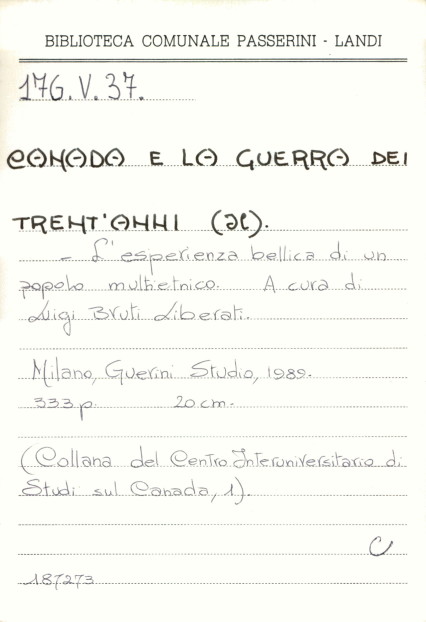 BIBLIOTECA COMUNALE PASSERINI - LANDI
176. V. 37.
CANADA E LA GUERRA DEI
TRENT'ANNI (Il).
- L'esperienza bellica di un
popolo multietnico. A cura di
Luigi Bruti Liberati.
Milano, Guerini Studio, 1989.
333 p. 20 cm.
(Collana del Centro Interuniversitario di
Studi sul Canada, 1).
C
187273